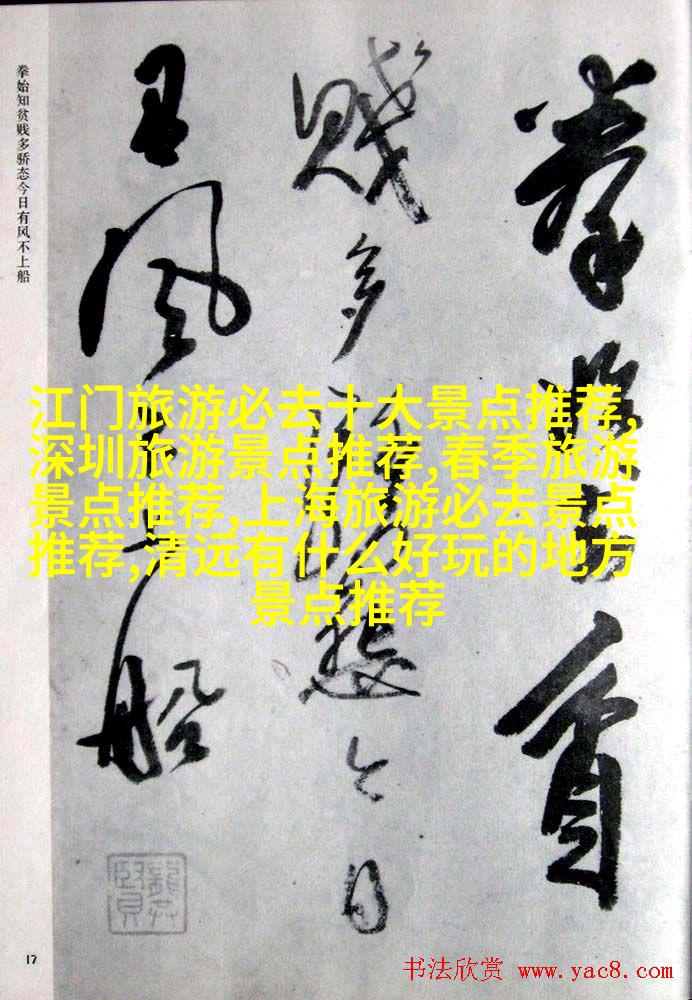 拳始知貧
賤多驕態今日
有風不上船
拳始知贫贱多骄态今日有风不上船
江门旅游必去十大景点推荐,
深圳旅游景点推荐,春季旅游
景点推荐,上海旅游必去景点
推荐,清远有什么好玩的地方
景点推荐
17
书法欣赏 www.yac8.com